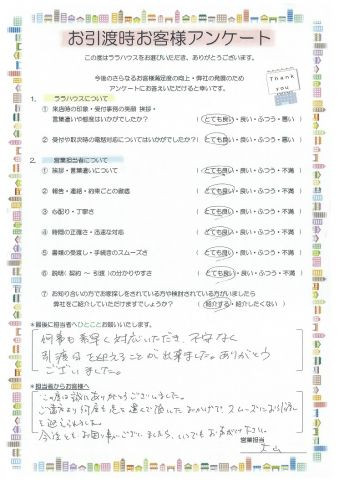 お引渡時お客様アンケート
この度はララハウスをお選びいただき、ありがとうございます。
今後のさらなるお客様満足度の向上・弊社の発展のため
アンケートにお答えいただけると幸いです。
Thank
you
1. ララハウスについて
① 来店時の印象・受付事務の笑顔 挨拶・
言葉遣いや態度はいかがでしたか? (とても良い・良い・ふつう・悪い)
② 受付や取次時の電話対応についてはいかがでしたか? (とても良い・良い・ふつう・悪い)
2. 営業担当者について
① 挨拶・言葉遣いについて (とても良い・良い・ふつう・不満)
② 報告・連絡・約束ごとの徹底 (とても良い・良い・ふつう・不満)
③ 心配り・丁寧さ (とても良い・良い・ふつう・不満)
④ 時間の正確さ・迅速な対応 (とても良い・良い・ふつう・不満)
⑤ 書類の受渡し・手続きのスムーズさ (とても良い・良い・ふつう・不満)
⑥ 説明(契約 ～ 引渡)の分かりやすさ (とても良い・良い・ふつう・不満)
⑦ お知り合いの方でお家探しをされている方や検討されている方がいましたら
弊社をご紹介していただけますでしょうか? (紹介する・紹介したくない)
*最後に担当者へひとことお願いいたします。
何事も素早く対応いただき、不安なく
引渡日を迎えることが出来ました。ありがとう
ございました。
*担当者からお客様へ
この度は誠にありがとうございました。
ご多忙の中何度も足を運んで頂いたおかげで、スムーズにお引渡し
を迎えれました。
今後ともお困り事ございましたら、いつでもお声がけ下さい。
営業担当